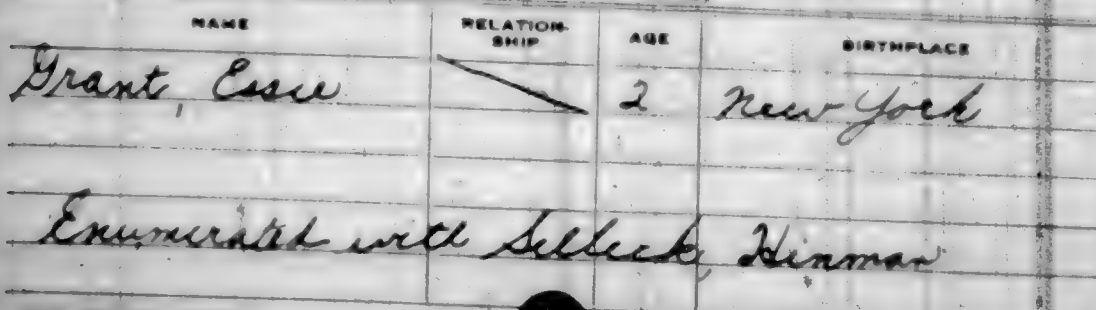 NAME RELATION-SHIP AGE BIRTHPLACE
Grant, Essie 2 New York
Enumerated with Selleck, Hinman